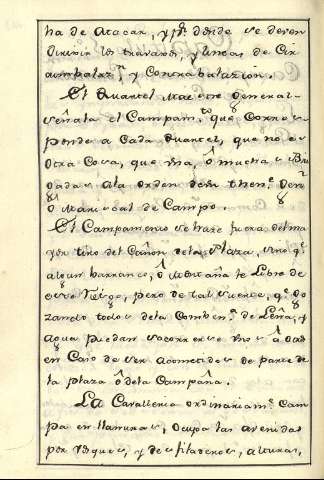 ha de Atacar, y pr. donde se deven
Dirivir los travaxos, y lineas de Cir
cumbalazn. y Contrabalazion.
El Quartel Maestre General
señala el Campamto. que Corres
ponde a Cada Quartel, que no es
otra Cosa, que una, ô muchas Bri
gadas ala orden de un Thene. Genl.
ô Mariscal de Campo.
El Campamento se haze fuera del ma
yor tiro del Cañon de la Plaza, sino qe.
algun barranco, ô Montaña le Libre de
ese Riesgo, pero de tal suerte, qe. go
zando todos dela Combena. de Leña, y
agua puedan socorrerse unos â otros
en Caso de ser acometidos de parte de
la plaza ô dela Campaña.
La Cavalleria ordinariamte. Cam
pa en llanuras, ocupa las avenidas
por Vosques, y desfiladeros, alturas,